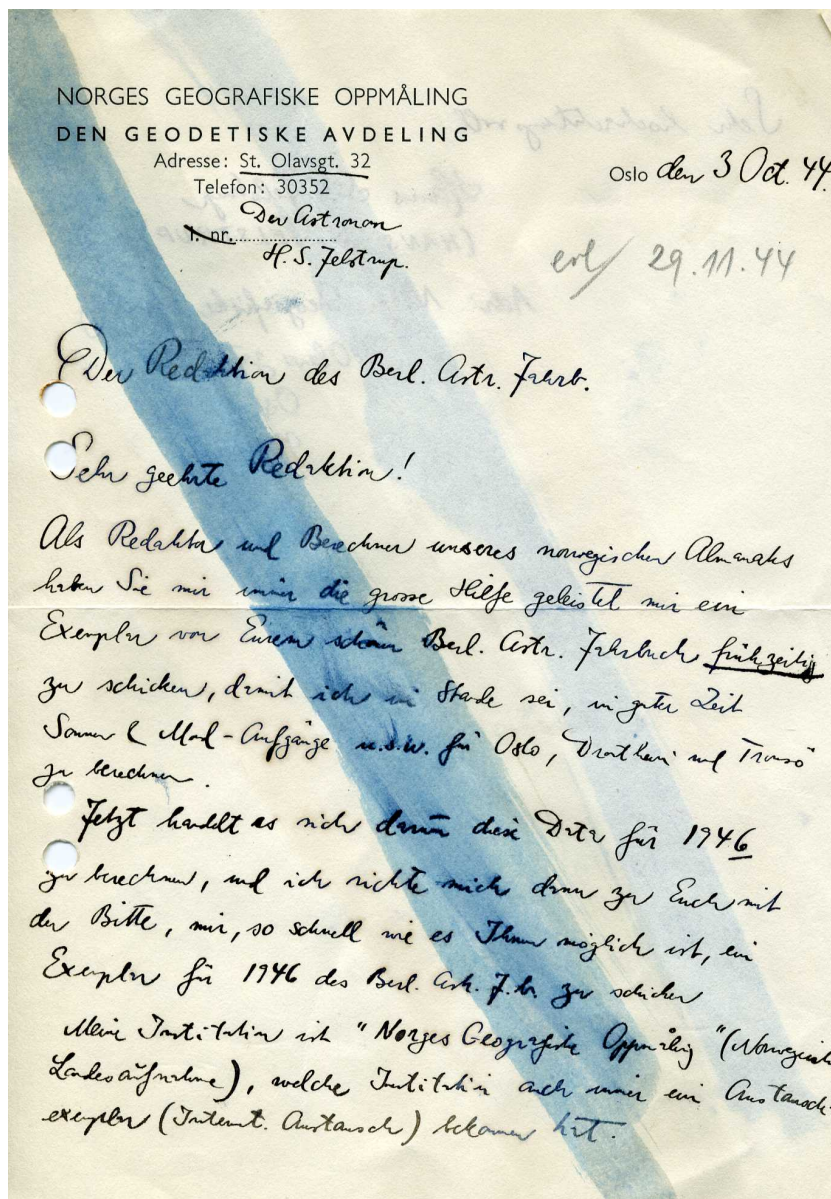 NORGES GEOGRAFISKE OPPMÅLING
DEN GEODETISKE AVDELING
Adresse: St. Olavsgt. 32
Telefon: 30352
Oslo den 3 Oct. 44.
Der Astronom
J. nr.
H. S. Jelstrup.
erl/ 29.11.44
Der Redaktion des Berl. Astr. Jahrb.
Sehr geehrte Redaktion!
Als Redaktor und Berechner unseres norwegischen Almanaks
haben Sie mir immer die grosse Hilfe geleistet mir ein
Exemplar von Eurem schönen Berl. Astr. Jahrbuch frühzeitig
zu schicken, damit ich im Stande sei, in guter Zeit
Sonnen & Mond-Aufgänge u.s.w. für Oslo, Drontheim und Tromsö
zu berechnen.
Jetzt handelt es sich darum diese Data für 1946
zu berechnen, und ich richte mich dann zu Euch mit
der Bitte, mir, so schnell wie es Ihnen möglich ist, ein
Exemplar für 1946 des Berl. Astr. J.b. zu schicken
Meine Institution ist "Norges Geografiske Oppmåling" (Norwegische
Landesaufnahme), welche Institution auch immer ein Austausch-
exemplar (Internat. Austausch) bekommen hat.